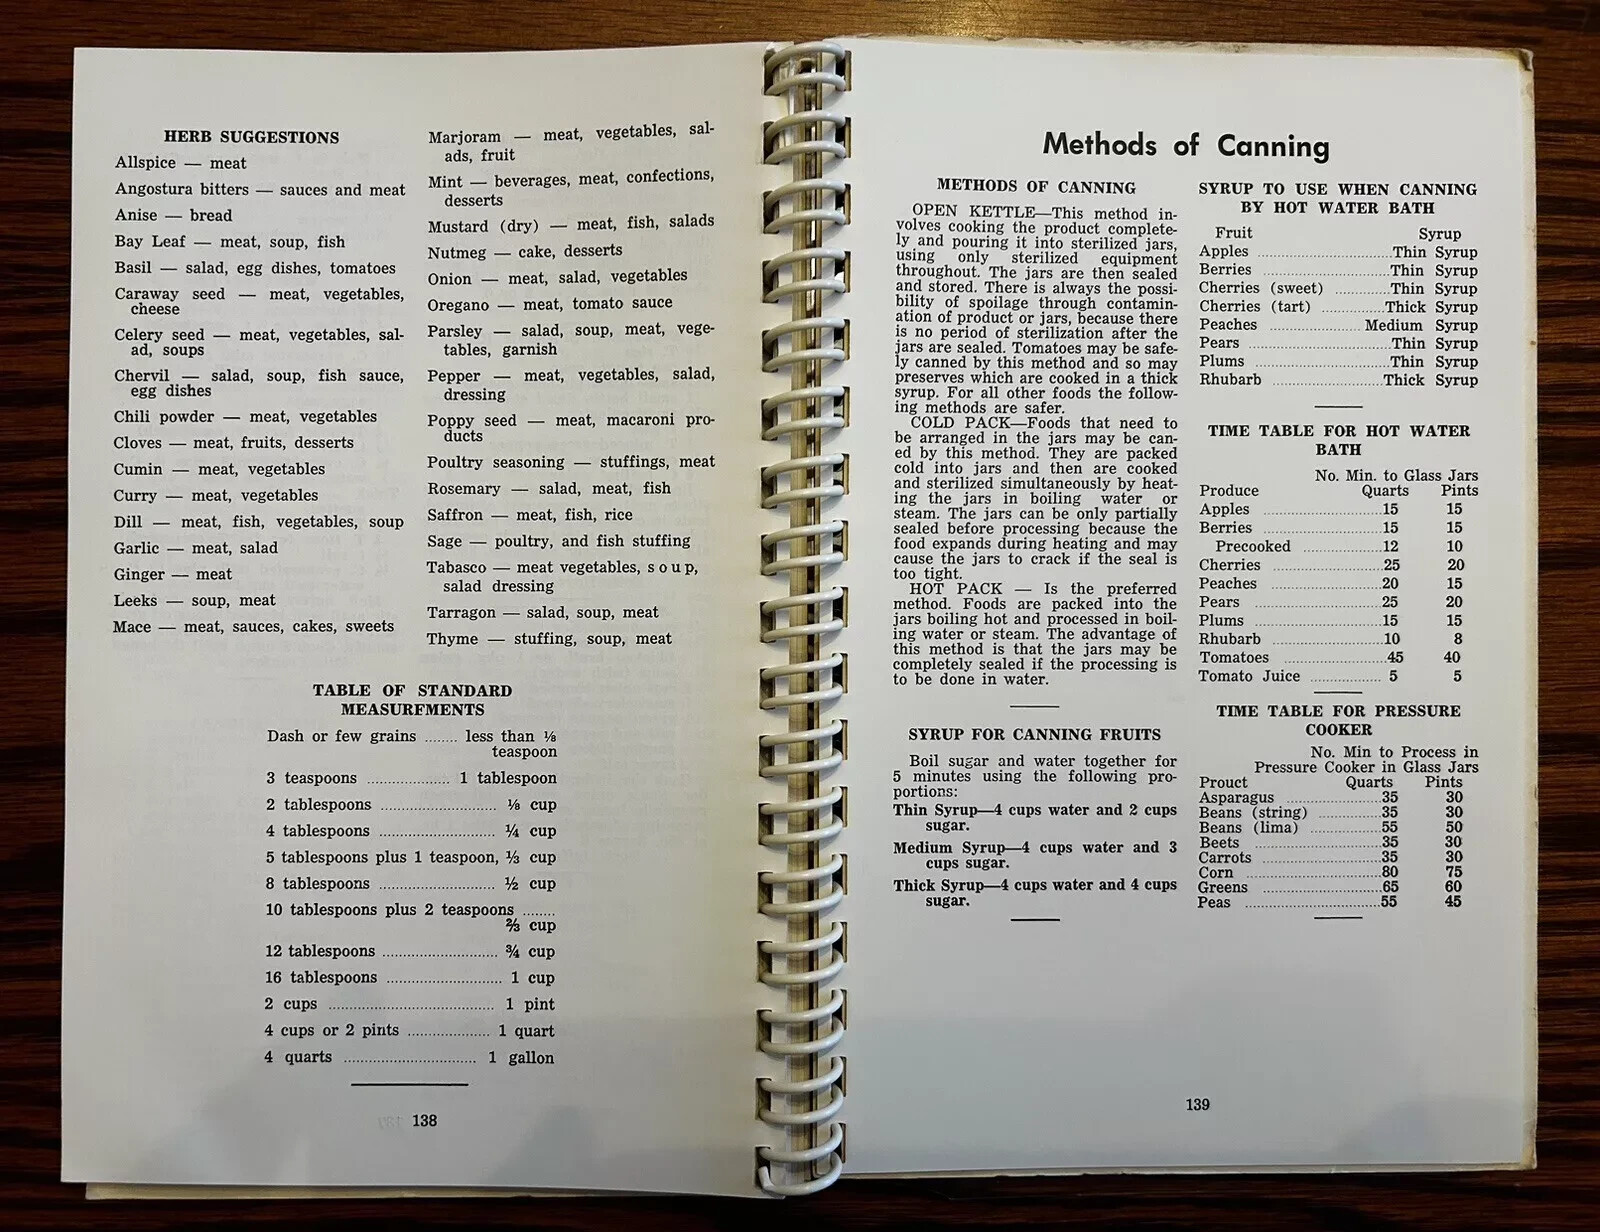 HERB SUGGESTIONS
Allspice — meat
Angostura bitters — sauces and meat
Anise — bread
Bay Leaf — meat, soup, fish
Basil — salad, egg dishes, tomatoes
Caraway seed — meat, vegetables,
cheese
Celery seed — meat, vegetables, sal-
ad, soups
Chervil — salad, soup, fish sauce,
egg dishes
Chili powder — meat, vegetables
Cloves — meat, fruits, desserts
Cumin — meat, vegetables
Curry — meat, vegetables
Dill — meat, fish, vegetables, soup
Garlic — meat, salad
Ginger — meat
Leeks — soup, meat
Mace — meat, sauces, cakes, sweets
Marjoram — meat, vegetables, sal-
ads, fruit
Mint — beverages, meat, confections,
desserts
Mustard (dry) — meat, fish, salads
Nutmeg — cake, desserts
Onion — meat, salad, vegetables
Oregano — meat, tomato sauce
Parsley — salad, soup, meat, vege-
tables, garnish
Pepper — meat, vegetables, salad,
dressing
Poppy seed — meat, macaroni pro-
ducts
Poultry seasoning — stuffings, meat
Rosemary — salad, meat, fish
Saffron — meat, fish, rice
Sage — poultry, and fish stuffing
Tabasco — meat vegetables, soup,
salad dressing
Tarragon — salad, soup, meat
Thyme — stuffing, soup, meat
TABLE OF STANDARD
MEASURFMENTS
Dash or few grains ........ less than ⅛
teaspoon
3 teaspoons .................... 1 tablespoon
2 tablespoons ............................ ⅛ cup
4 tablespoons ............................ ¼ cup
5 tablespoons plus 1 teaspoon, ⅓ cup
8 tablespoons ............................ ½ cup
10 tablespoons plus 2 teaspoons ........
⅔ cup
12 tablespoons ............................ ¾ cup
16 tablespoons ............................ 1 cup
2 cups ........................................ 1 pint
4 cups or 2 pints .................... 1 quart
4 quarts ................................ 1 gallon
138
Methods of Canning
METHODS OF CANNING
OPEN KETTLE—This method in-
volves cooking the product complete-
ly and pouring it into sterilized jars,
using only sterilized equipment
throughout. The jars are then sealed
and stored. There is always the possi-
bility of spoilage through contamin-
ation of product or jars, because there
is no period of sterilization after the
jars are sealed. Tomatoes may be safe-
ly canned by this method and so may
preserves which are cooked in a thick
syrup. For all other foods the follow-
ing methods are safer.
COLD PACK—Foods that need to
be arranged in the jars may be can-
ed by this method. They are packed
cold into jars and then are cooked
and sterilized simultaneously by heat-
ing the jars in boiling water or
steam. The jars can be only partially
sealed before processing because the
food expands during heating and may
cause the jars to crack if the seal is
too tight.
HOT PACK — Is the preferred
method. Foods are packed into the
jars boiling hot and processed in boil-
ing water or steam. The advantage of
this method is that the jars may be
completely sealed if the processing is
to be done in water.
SYRUP FOR CANNING FRUITS
Boil sugar and water together for
5 minutes using the following pro-
portions:
Thin Syrup—4 cups water and 2 cups
sugar.
Medium Syrup—4 cups water and 3
cups sugar.
Thick Syrup—4 cups water and 4 cups
sugar.
SYRUP TO USE WHEN CANNING
BY HOT WATER BATH
Fruit Syrup
Apples ................................Thin Syrup
Berries ............................Thin Syrup
Cherries (sweet) .............Thin Syrup
Cherries (tart) ...............Thick Syrup
Peaches ......................Medium Syrup
Pears ................................Thin Syrup
Plums ................................Thin Syrup
Rhubarb ............................Thick Syrup
TIME TABLE FOR HOT WATER
BATH
No. Min. to Glass Jars
Produce Quarts Pints
Apples ............................15 15
Berries ............................15 15
Precooked ...................12 10
Cherries ............................25 20
Peaches ............................20 15
Pears ................................25 20
Plums ................................15 15
Rhubarb ............................10 8
Tomatoes ........................45 40
Tomato Juice ................. 5 5
TIME TABLE FOR PRESSURE
COOKER
No. Min to Process in
Pressure Cooker in Glass Jars
Prouct Quarts Pints
Asparagus ......................35 30
Beans (string) ...............35 30
Beans (lima) .................55 50
Beets ................................35 30
Carrots ............................35 30
Corn ................................80 75
Greens ............................65 60
Peas ................................55 45
139